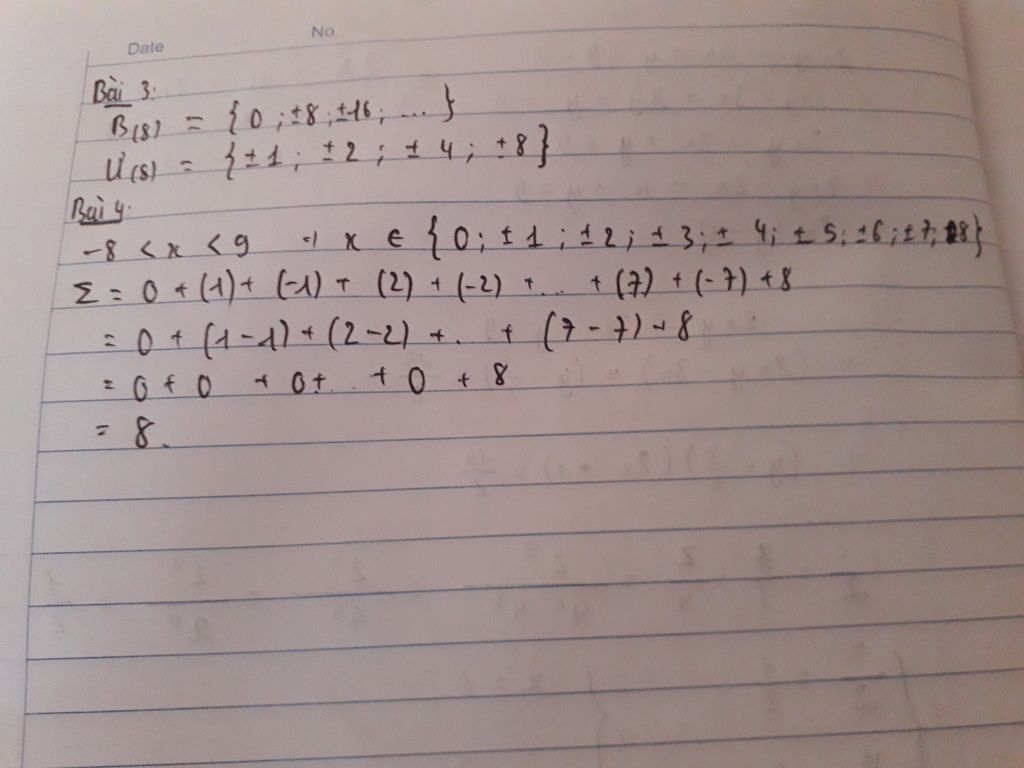 Date No
Bài 3:
B(8) = {0 ; ±8 ; ±16 ; ...}
Ư(8) = {±1 ; ±2 ; ± 4 ; ±8}
Bài 4:
-8 < x < 9 => x ∈ {0; ±1 ; ±2 ; ±3 ; ± 4; ±5; ±6; ±7; 8}
Σ = 0 + (1) + (-1) + (2) + (-2) + ... + (7) + (-7) + 8
= 0 + (1-1) + (2-2) + .. + (7-7) + 8
= 0 + 0 + 0 + .. + 0 + 8
= 8.